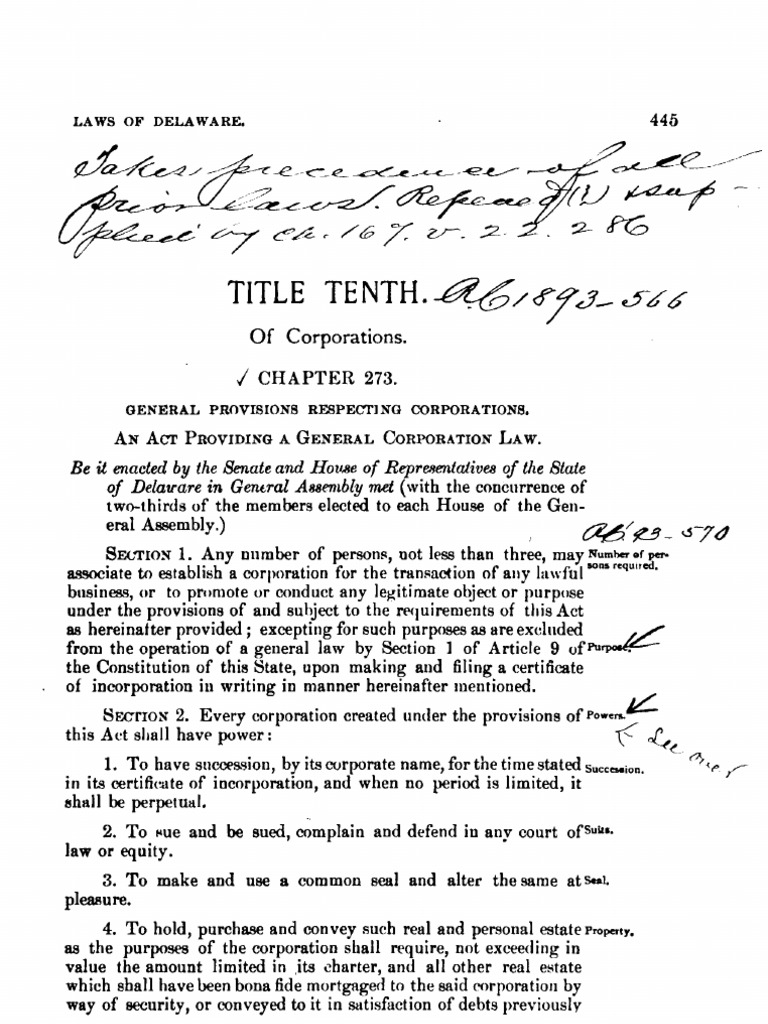 LAWS OF DELAWARE. 445
Takes precedence of all
prior laws. Repealed (?) & sup-
plied by ch. 167. v. 22. 286
TITLE TENTH. R.C. 1893-566
Of Corporations.
✓ CHAPTER 273.
GENERAL PROVISIONS RESPECTING CORPORATIONS.
AN ACT PROVIDING A GENERAL CORPORATION LAW.
Be it enacted by the Senate and House of Representatives of the State
of Delaware in General Assembly met (with the concurrence of
two-thirds of the members elected to each House of the Gen-
eral Assembly.)
93-570
SECTION 1. Any number of persons, not less than three, may Number of per-
associate to establish a corporation for the transaction of any lawful sons required.
business, or to promote or conduct any legitimate object or purpose
under the provisions of and subject to the requirements of this Act
as hereinafter provided; excepting for such purposes as are excluded
from the operation of a general law by Section 1 of Article 9 of Purpose.
the Constitution of this State, upon making and filing a certificate
of incorporation in writing in manner hereinafter mentioned.
SECTION 2. Every corporation created under the provisions of Powers.
this Act shall have power:
See over
1. To have succession, by its corporate name, for the time stated Succession.
in its certificate of incorporation, and when no period is limited, it
shall be perpetual.
2. To sue and be sued, complain and defend in any court of Suits.
law or equity.
3. To make and use a common seal and alter the same at Seal.
pleasure.
4. To hold, purchase and convey such real and personal estate Property.
as the purposes of the corporation shall require, not exceeding in
value the amount limited in its charter, and all other real estate
which shall have been bona fide mortgaged to the said corporation by
way of security, or conveyed to it in satisfaction of debts previously